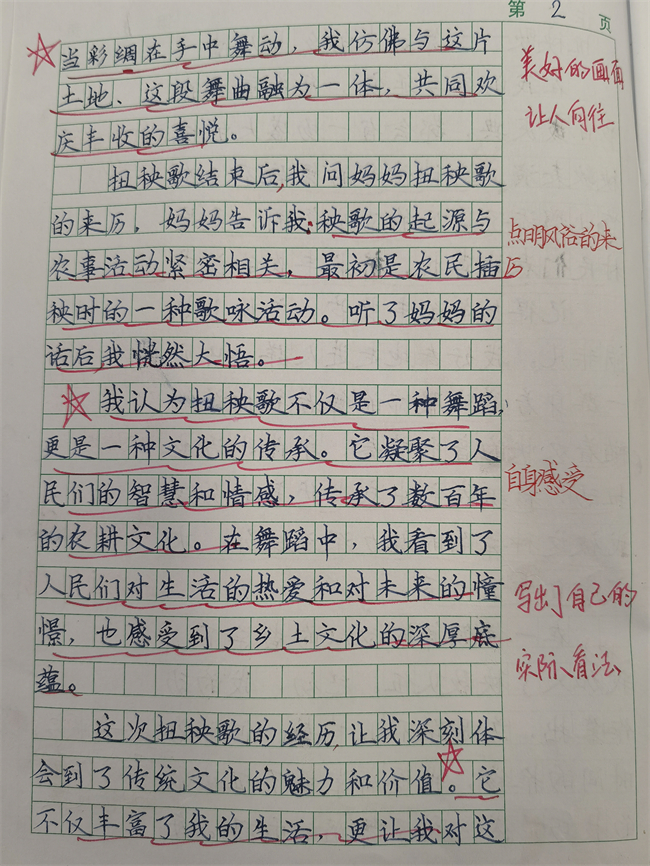 第 2 页
当彩绸在手中舞动，我仿佛与这片
土地、这段舞曲融为一体，共同欢
庆丰收的喜悦。
美好的画面
让人向往
扭秧歌结束后，我问妈妈扭秧歌
的来历，妈妈告诉我：秧歌的起源与
农事活动紧密相关，最初是农民插
秧时的一种歌咏活动。听了妈妈的
话后我恍然大悟。
点明风俗的来
历
我认为扭秧歌不仅是一种舞蹈，
更是一种文化的传承。它凝聚了人
民们的智慧和情感，传承了数百年
的农耕文化。在舞蹈中，我看到了
人民们对生活的热爱和对未来的憧
憬，也感受到了乡土文化的深厚底
蕴。
自身感受
写出了自己的
实际看法
这次扭秧歌的经历，让我深刻体
会到了传统文化的魅力和价值。它
不仅丰富了我的生活，更让我对这